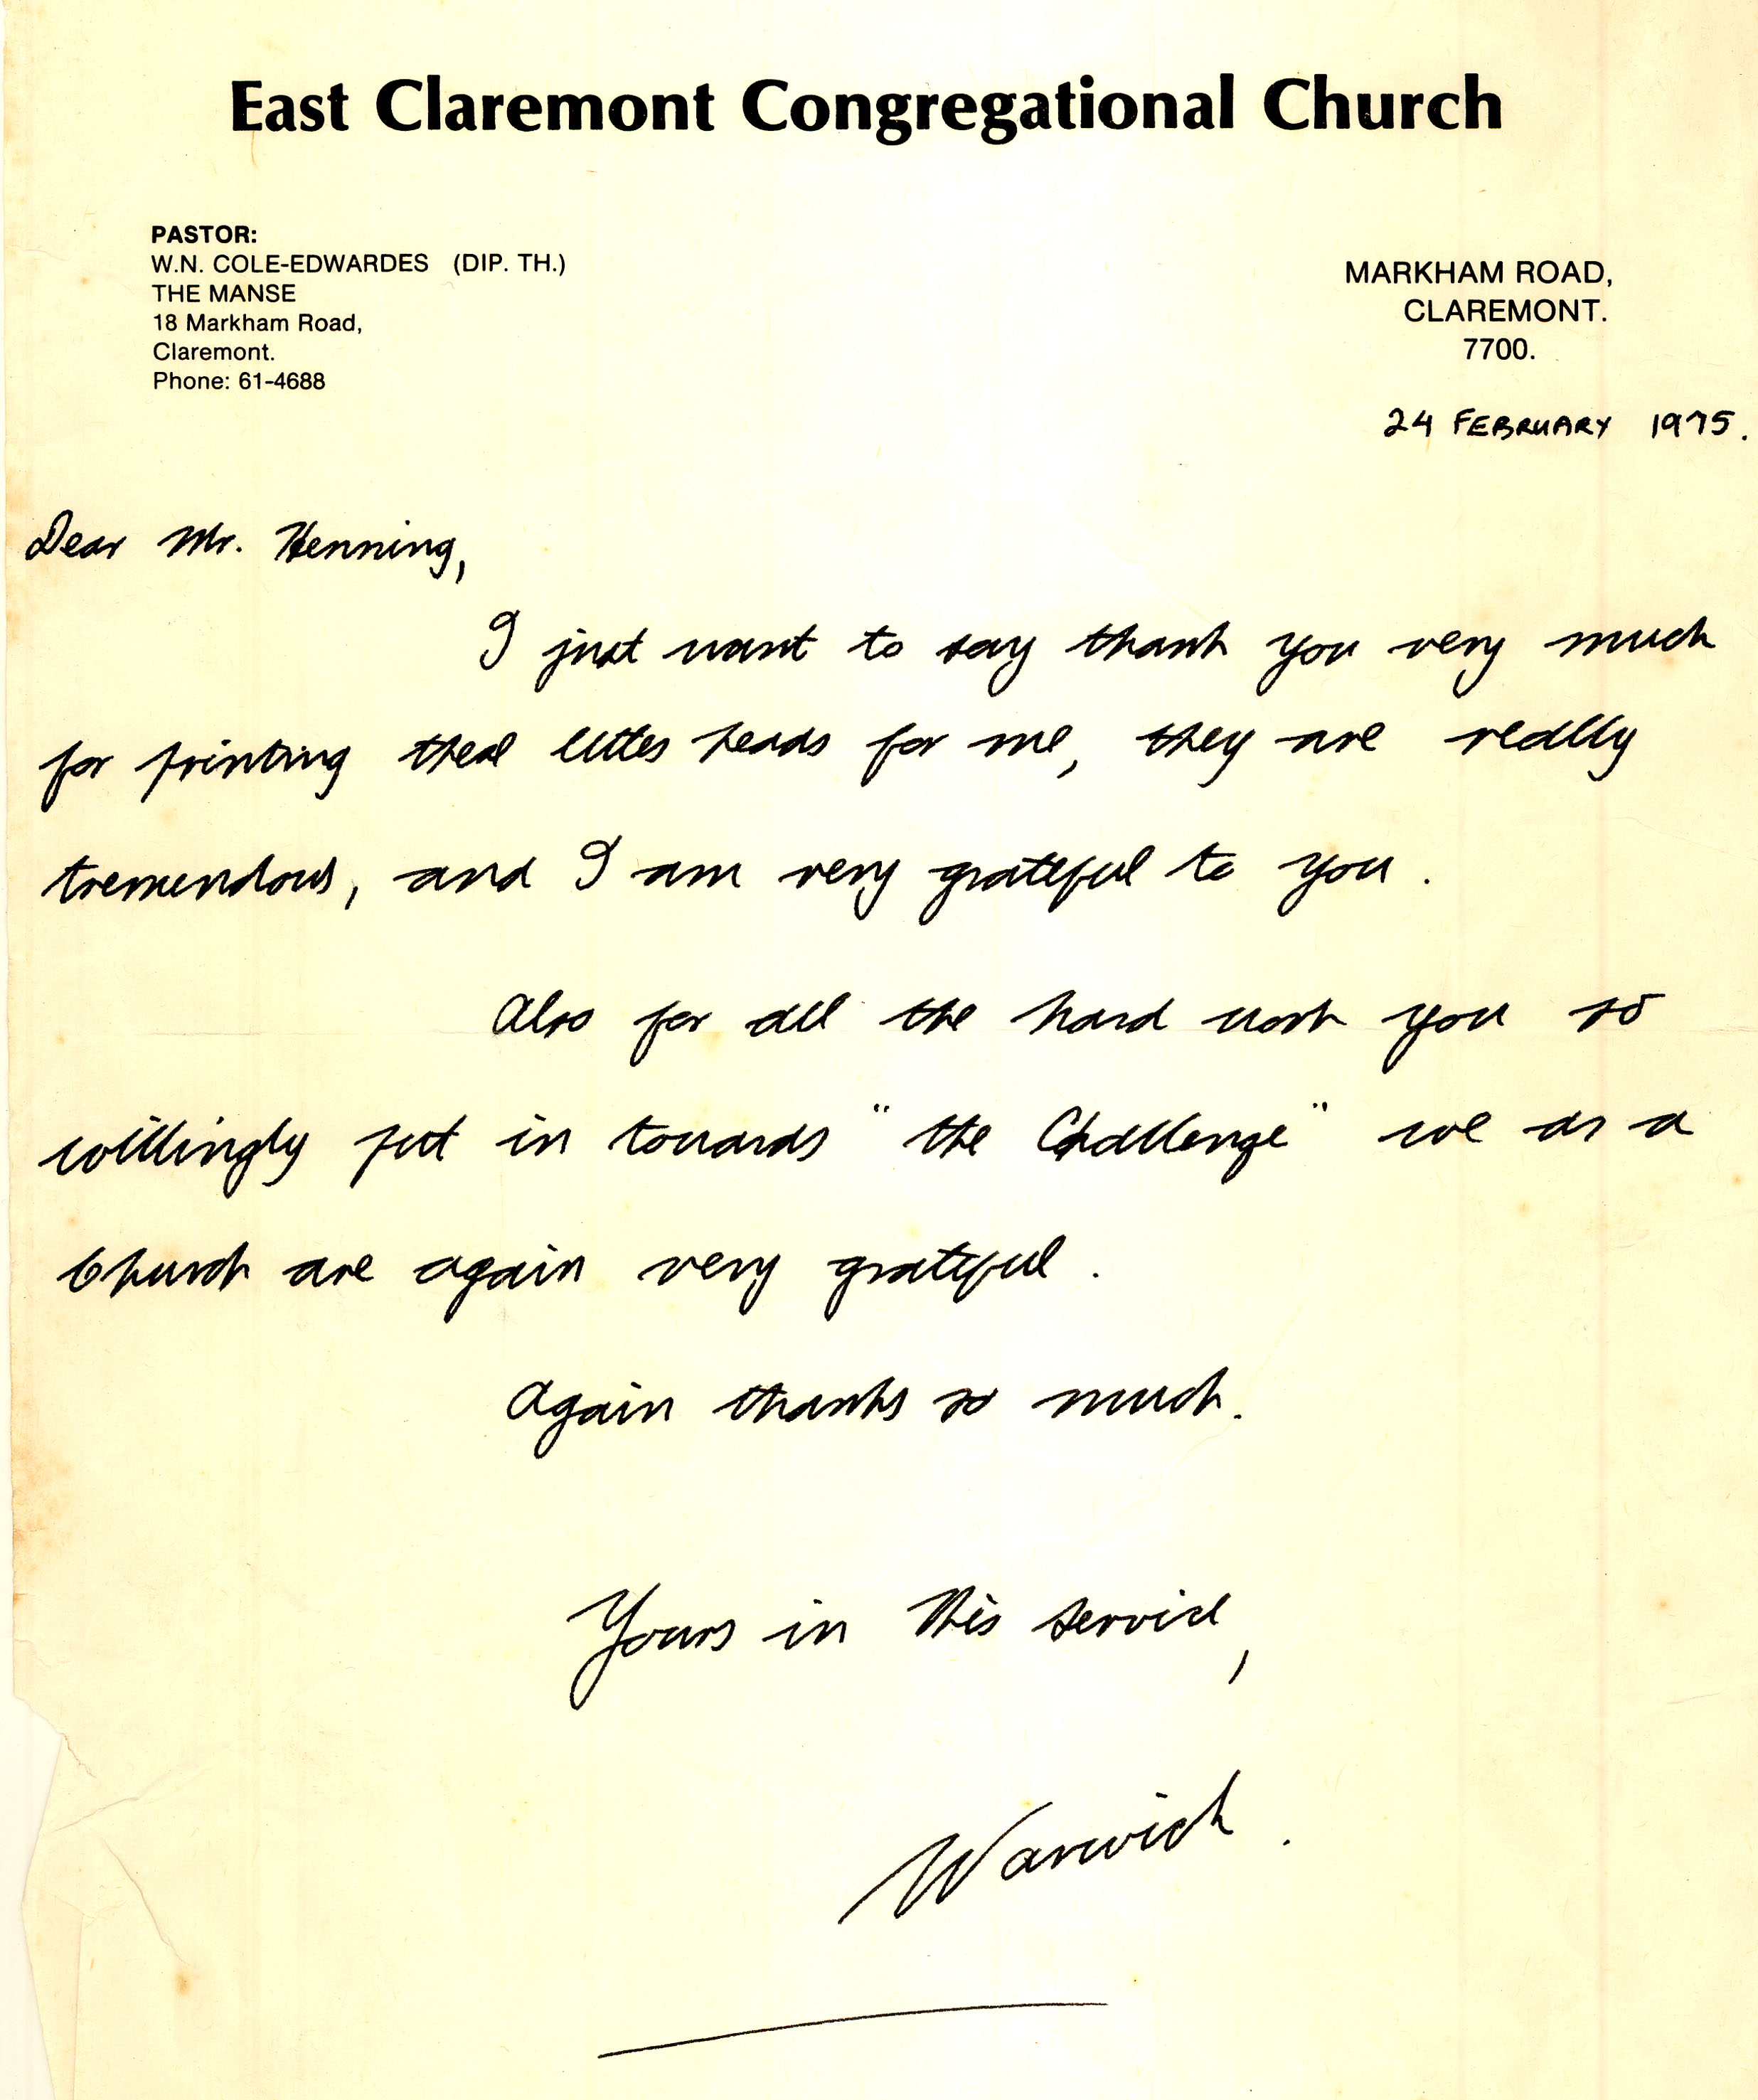 East Claremont Congregational Church
PASTOR:
W.N. COLE-EDWARDES (DIP. TH.)
THE MANSE
18 Markham Road,
Claremont.
Phone: 61-4688
MARKHAM ROAD,
CLAREMONT.
7700.
24 FEBRUARY 1975.
Dear Mr. Henning,
I just want to say thank you very much
for printing these letter heads for me, they are really
tremendous, and I am very grateful to you.
Also for all the hard work you so
willingly put in towards "the Challenge" we as a
Church are again very grateful.
Again thanks so much.
Yours in His service,
Warwick.